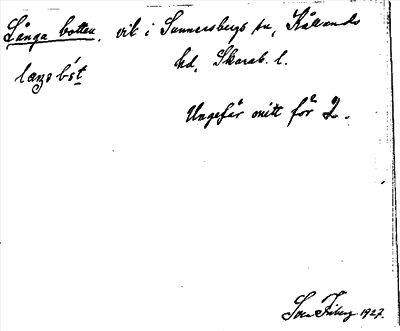 Långa botten, vik i Sunnersbergs sn, Kållands
hd, Skarab. l.
Ungefär mitt för 2.
Sven Friberg 1927.